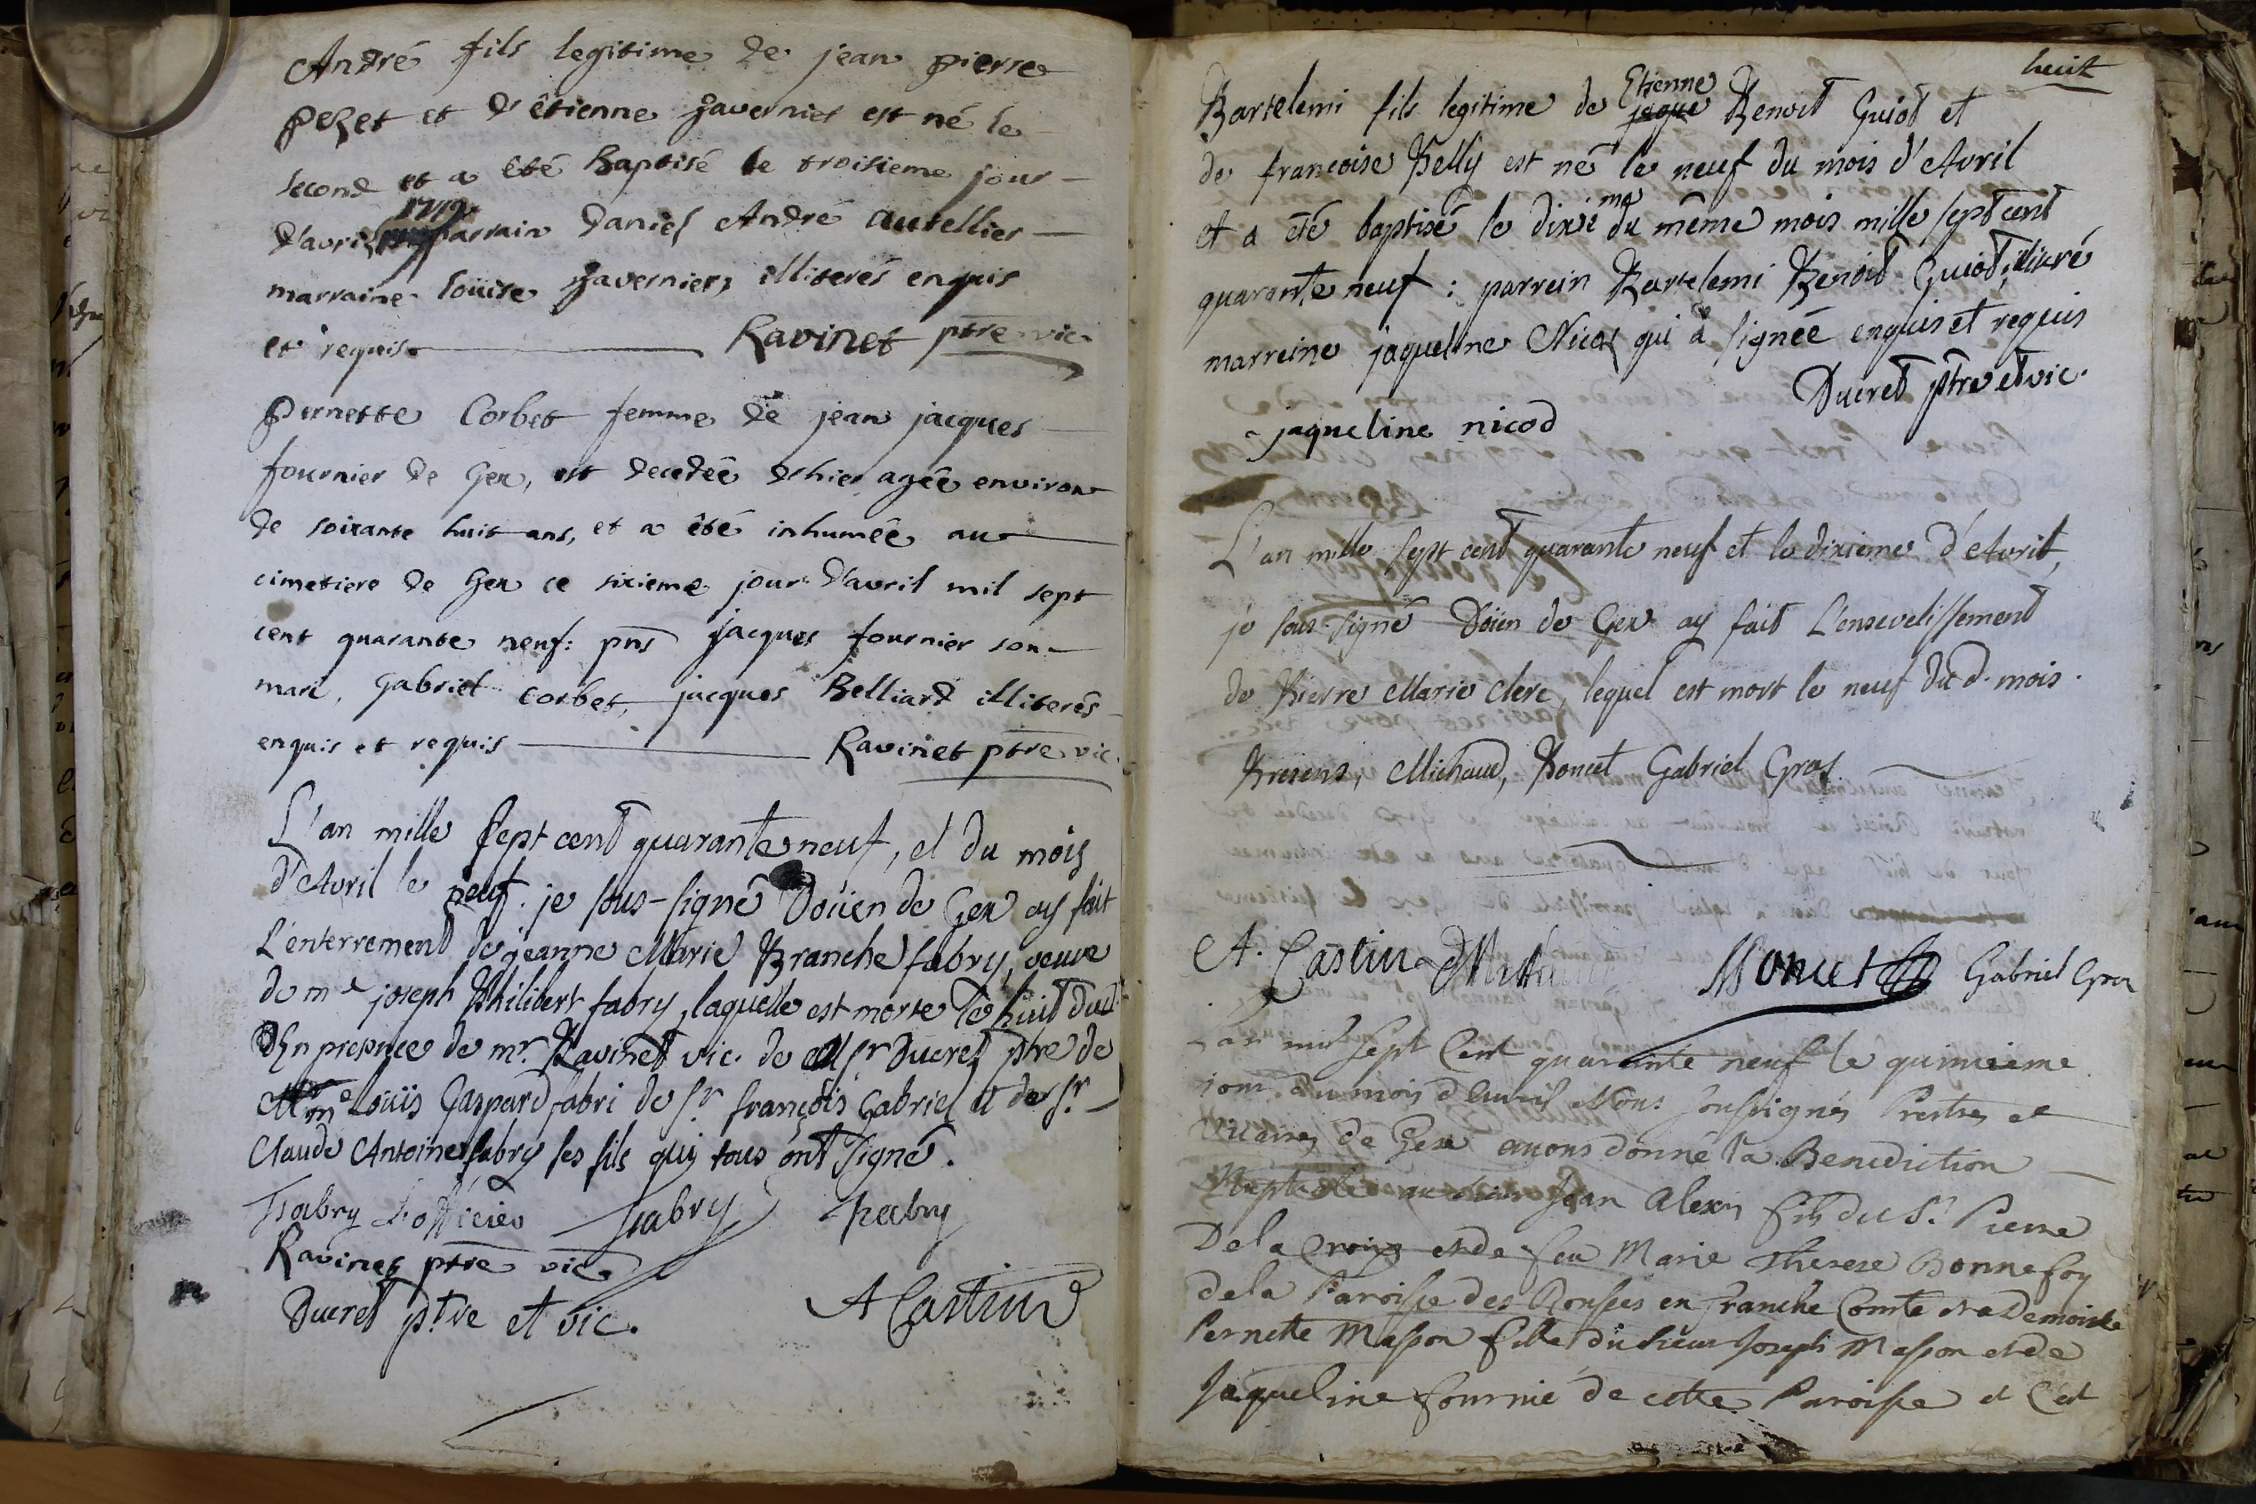 André fils legitime de jean pierre
pezet et d'étienne gavernier est né le
second et a été Baptisé le troisieme jour
d'avril 1749 parrain daniel André autellier
marraine loüise gavernier, illiterés enquis
et requis Ravinet ptre vic.
pernette Corbet femme de jean jacques
fournier de Gex, est decedée d'hier agée environ
de soixante huit ans, et a été inhumée au
cimetiere de Gex ce sixieme jour d'avril mil sept
cent quarante neuf: pns jacques fournier son
mari, Gabriel corbet, jacques Belliard illiterés
enquis et requis Ravinet ptre vic.
L'an mille sept cent quarante neuf, et du mois
d'Avril le neuf. je sous-signé Doüen de Gex ay fait
L'enterrement de jeanne Marie Branche fabry, veuve
de me joseph Philibert fabry, laquelle est morte le huit dud.
En presence de mr. Ravinet vic. de Sr Ducret ptre de
me Loüis Gaspard fabri de Sr françois Gabriel et de Sr
Claude Antoine fabry ses fils qui tous ont signé.
fabry L'officier fabry fabry
Ravinet ptre vic
Ducret ptre et vic. A Castin
huit
Bartelemi fils legitime de Etienne jaque Benoit Guiot et
de francoise Pelly est né le neuf du mois d'Avril
et a été baptisé le dixieme du même mois mille sept cent
quarante neuf: parrein Bartelemi Benoit Guiot, illitré
marreine jaqueline Nicod qui a signée enquis et requis
Ducret ptre et vic.
jaqueline nicod
L'an mille sept cent quarante neuf et le dixieme d'Avril,
je sous-signé Doüen de Gex ay fait L'ensevelissement
de Pierre Marie Clerc, lequel est mort le neuf dud. mois.
Presens, Michaud, Poncet Gabriel Gros.
A. Castin Michaud Poncet Gabriel Gros
L'an mil sept Cent quarante neuf le quinzieme
jour du mois d'Avril Nous soussignés Prestres et
Vicaires de Gex avons donné la Benediction
Nuptiale au sieur Jean Alexis fils du Sr. Pierre
De la Croix et de feu Marie Therese Bonnefoy
de la Paroisse des Rousses en franche Comte et a Demoiselle
Pernette Masson fille du sieur Joseph Masson et de
Jaqueline fournie de cette Paroisse et C'est